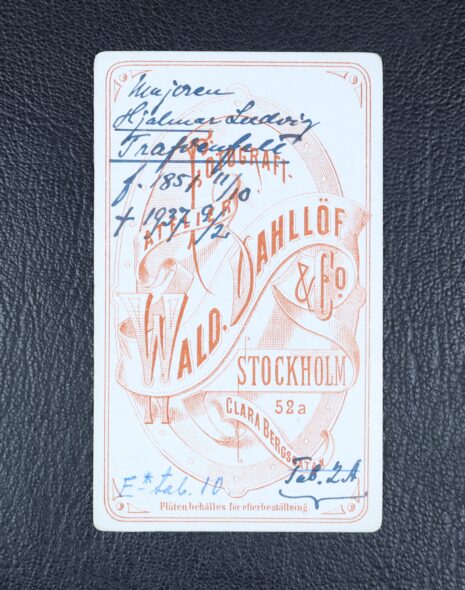 Majoren
Hjalmar Ludvig
Trafvenfelt
f. 1851 11/10
† 1937 9/2
FOTOGRAFI.
ATELIER
WALD. DAHLLÖF
& Co.
STOCKHOLM
52a
CLARA BERGSGATAN
E* tab. 10
Tab. 2A
Plåten behålles för efterbeställning.